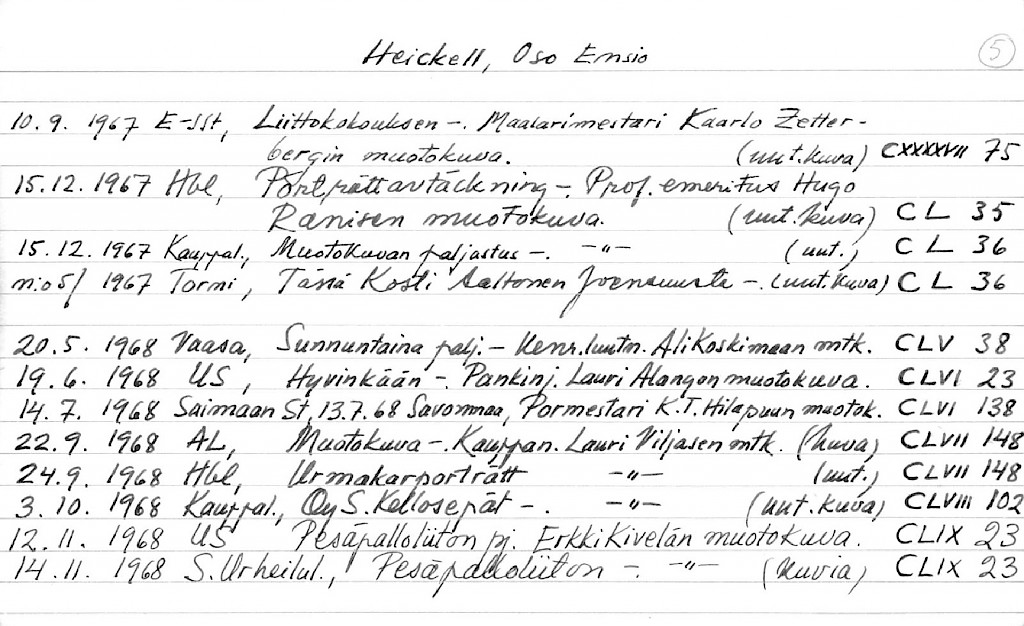 Heickell, Oso Emsio 5
10.9. 1967 E-SSt, Liittokokouksen -. Maalarimestari Kaarlo Zetter-
bergin muotokuva. (uut.kuva) CXXXXVII 75
15.12.1967 Hbl, Porträttavtäckning -. Prof. emeritus Hugo
Ranisen muotokuva. (uut.kuva) CL 35
15.12.1967 Kauppal., Muotokuvan paljastus -. -"- (uut.) CL 36
n:o 5/ 1967 Tormi, Tässä Kosti Aaltonen Joensuusta -. (uut.kuva) CL 36
20.5. 1968 Vaasa, Sunnuntaina palj. - Kenr.luutn. Ali Koskimaan mtk. CLV 38
19.6. 1968 US, Hyvinkään -. Pankinj. Lauri Alangon muotokuva. CLVI 23
14.7. 1968 Saimaan St, 13.7.68 Savonmaa, Pormestari K.T. Hilapuun muotok. CLVI 138
22.9. 1968 AL, Muotokuva -. Kauppan. Lauri Viljasen mtk. (kuva) CLVII 148
24.9. 1968 Hbl, Urmakarporträtt -"- (uut.) CLVII 148
3.10. 1968 Kauppal., Oy S. Kellosepät -. -"- (uut.kuva) CLVIII 102
12.11. 1968 US Pesäpalloliiton pj. Erkki Kivelän muotokuva. CLIX 23
14.11. 1968 S.Urheilul., Pesäpalloliiton -. -"- (kuvia) CLIX 23